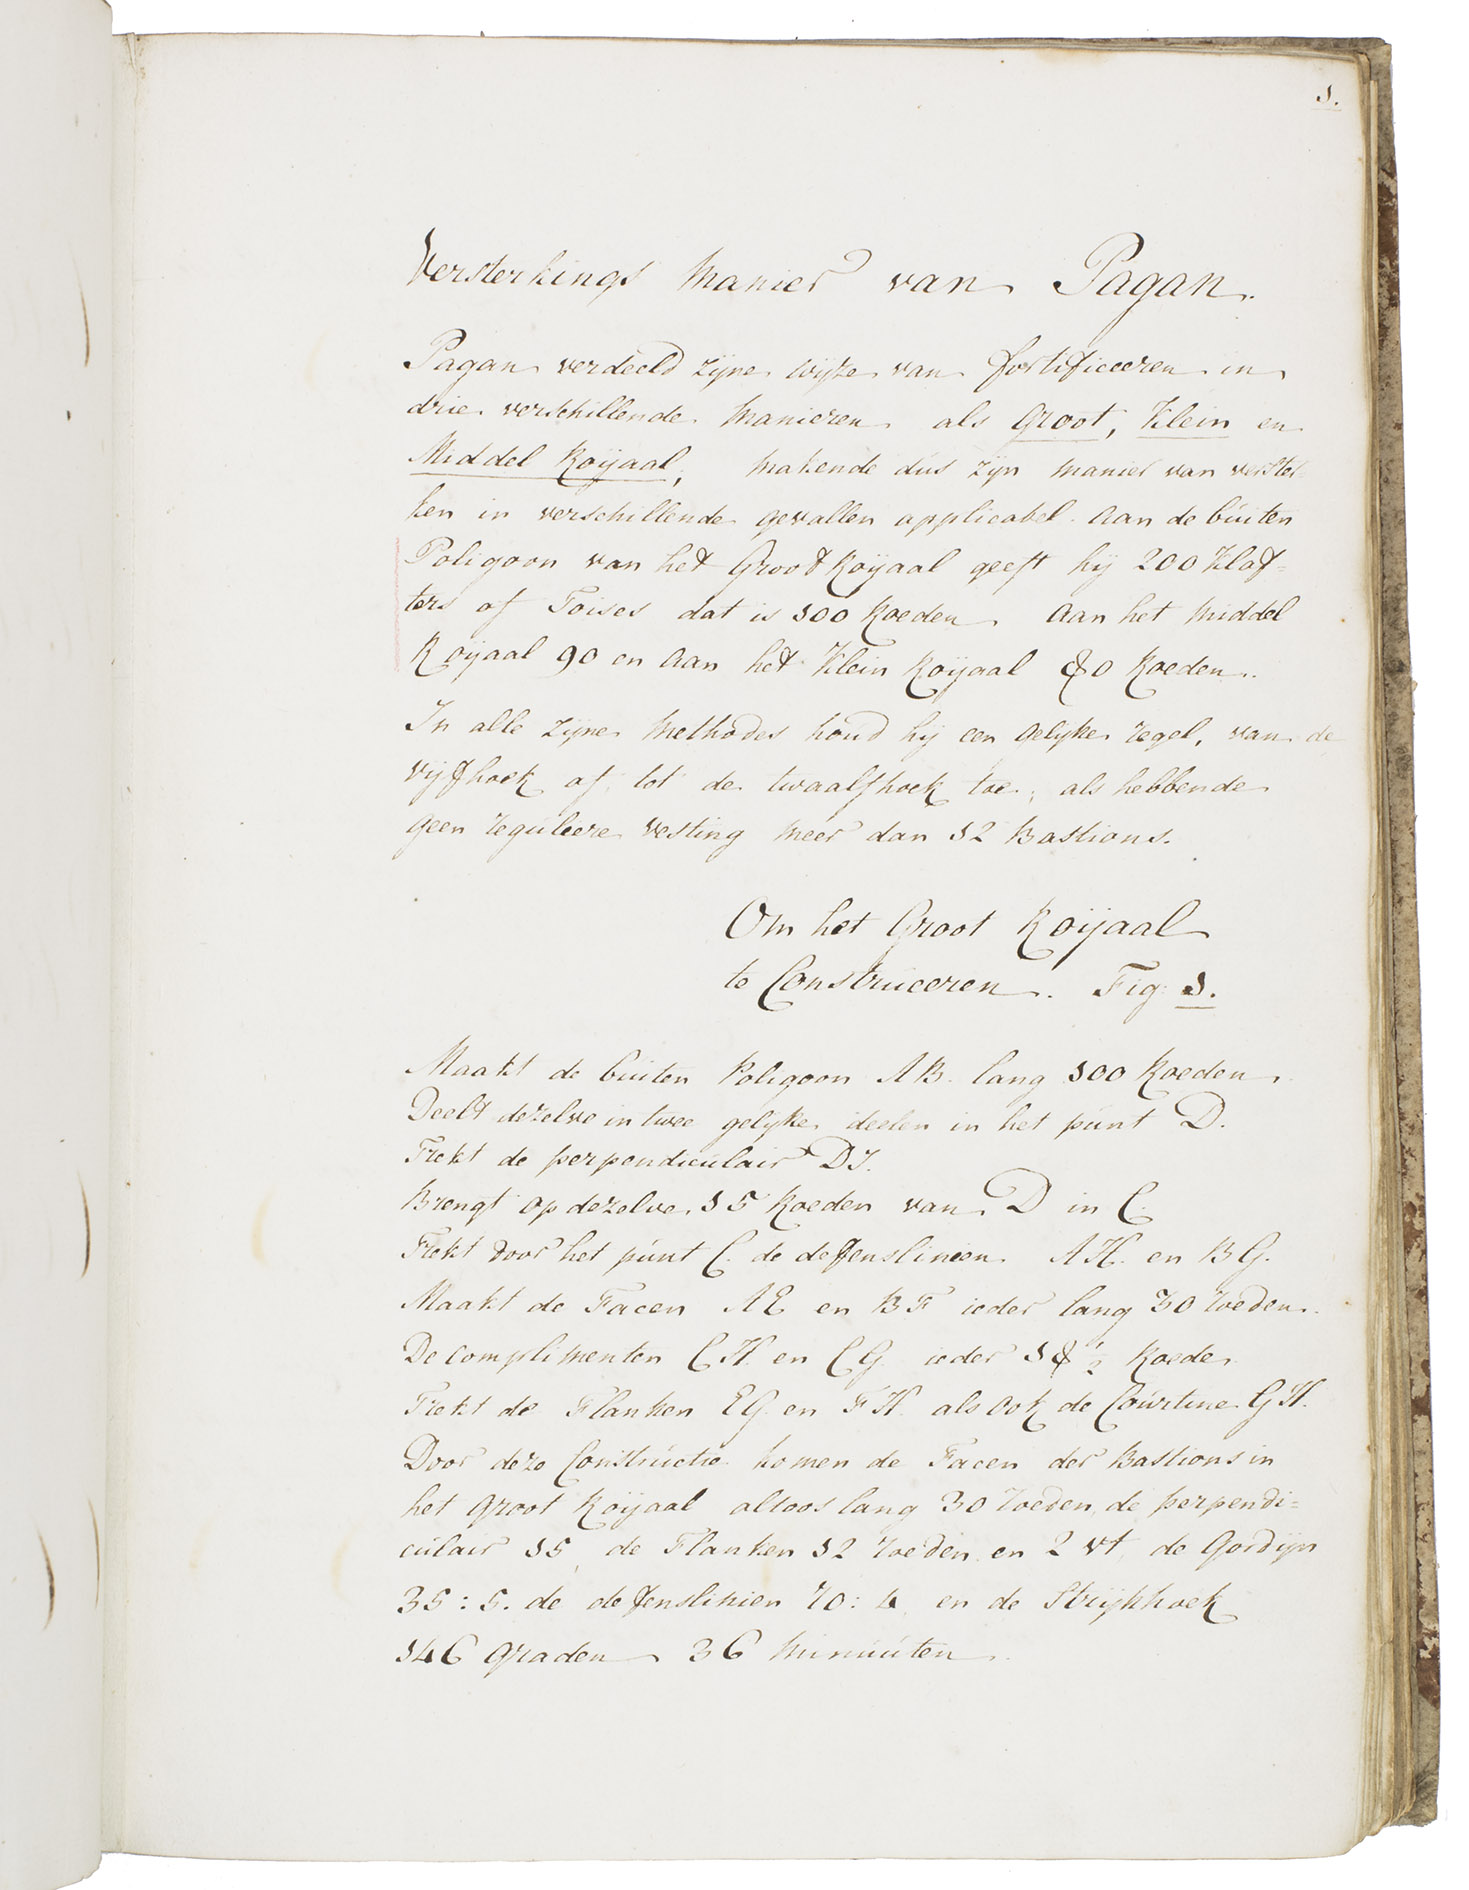 1.
Versterkings manier van Pagan.
Pagan verdeeld zijne wijze van fortificeeren in
drie verschillende manieren als Groot, Klein en
Middel Roijaal, makende dus zijn manier van verster-
ken in verschillende gevallen applicabel. Aan de buiten
Poligoon van het Groot Roijaal geeft hij 200 Klaf=
ters of Toises dat is 100 Roeden, aan het middel
Roijaal 90 en aan het Klein Roijaal 80 Roeden.
In alle zijne methodes houd hij een gelijke regel, van de
vijfhoek af, tot de twaalfhoek toe, als hebbende
geen reguliere vesting meer dan 12 Bastions.
Om het Groot Roijaal
te Construeeren. Fig: 1.
Maakt de buiten Poligoon AB. lang 100 Roeden.
Deelt dezelve in twee gelijke deelen in het punt D.
Trekt de perpendiculair DI.
Brengt op dezelve 15 Roeden van D in C.
Trekt door het punt C. de defenslinien AH. en BG.
Maakt de Facen AE en BF ieder lang 30 roeden.
De complimenten CH. en CG. ieder 18 1/2 Roede
Trekt de Flanken EG. en FH. als ook de Courtine GH.
Door deze Constructie komen de Facen der Bastions in
het groot Roijaal altoos lang 30 roeden, de perpendi=
culair 15, de Flanken 12 roeden en 2 vt, de Gordijn
35:5. de defenslinien 70:4, en de Strijkhoek
146 graden 36 minuuten.